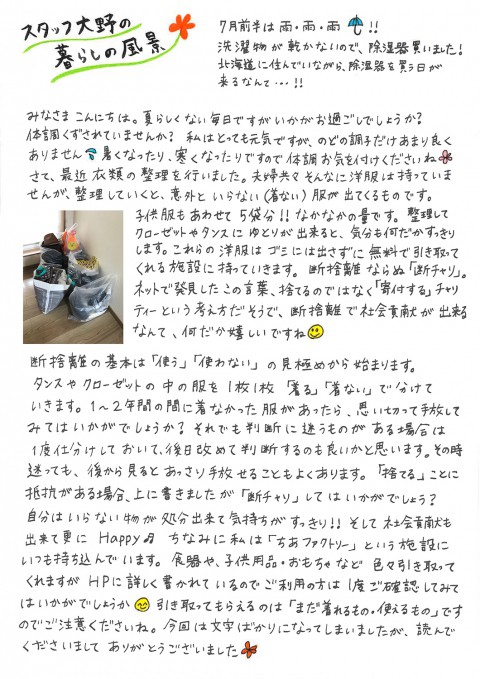 スタッフ大野の
暮らしの風景
7月前半は雨・雨・雨!!
洗濯物が乾かないので、除湿器買いました!
北海道に住んでいながら、除湿器を買う日が
来るなんて・・・!!
みなさまこんにちは。夏らしくない毎日ですがいかがお過ごしでしょうか?
体調くずされていませんか? 私はとっても元気ですが、のどの調子だけあまり良く
ありません 暑くなったり、寒くなったりですので体調お気を付けくださいね
さて、最近衣類の整理を行いました。夫婦共々そんなに洋服は持っていま
せんが、整理していくと、意外といらない(着ない)服が出てくるものです。
子供服もあわせて5袋分!!なかなかの量です。整理して
クローゼットやタンスにゆとりが出来ると、気分も何だかすっきり
します。これらの洋服はゴミには出さずに無料で引き取って
くれる施設に持っていきます。断捨離ならぬ「断チャリ」。
ネットで発見したこの言葉、捨てるのではなく「寄付する」チャリ
ティーという考え方だそうで、断捨離で社会貢献が出来る
なんて、何だか嬉しいですね
断捨離の基本は「使う」「使わない」の見極めから始まります。
タンスやクローゼットの中の服を1枚1枚「着る」「着ない」で分けて
いきます。1〜2年間の間に着なかった服があったら、思い切って手放して
みてはいかがでしょうか? それでも判断に迷うものがある場合は
1度仕分けしておいて、後日改めて判断するのも良いかと思います。その時
迷っても、後から見るとあっさり手放せることもよくあります。「捨てる」ことに
抵抗がある場合、上に書きましたが「断チャリ」してはいかがでしょう?
自分はいらない物が処分出来て気持ちがすっきり!! そして社会貢献も
出来て更にHappy♬ ちなみに私は「ちあファクトリー」という施設に
いつも持ち込んでいます。食器や、子供用品・おもちゃなど色々引き取って
くれますがHPに詳しく書かれているのでご利用の方は1度ご確認してみて
はいかがでしょうか 引き取ってもらえるのは「まだ着れるもの・使えるもの」です
のでご注意くださいね。今回は文字ばかりになってしまいましたが、読んで
くださいましてありがとうございました